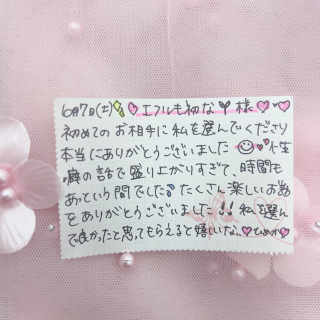 6月7日(土) エフルも初な様
初めてのお相手に私を選んでくださり
本当にありがとうございました
癖の話で盛り上がりすぎて、時間も
あっという間でした たくさん楽しいお勉
をありがとうございました!! 私を選ん
で良かったと思ってもらえると嬉しいな..